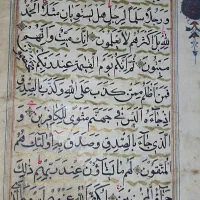 ورجلا سلما لرجل هل يستويان مثلا الحمد
لله بل اكثرهم لا يعلمون انك ميت وانهم
ميتون ثم انكم يوم القيمة عند ربكم تختصمون
فمن اظلم ممن كذب على الله وكذب بالصدق
اذ جاءه اليس في جهنم مثوى للكافرين و
الذي جاء بالصدق وصدق به اولئك هم
المتقون لهم ما يشاؤن عند ربهم ذلك
جزاء المحسنين ليكفر الله